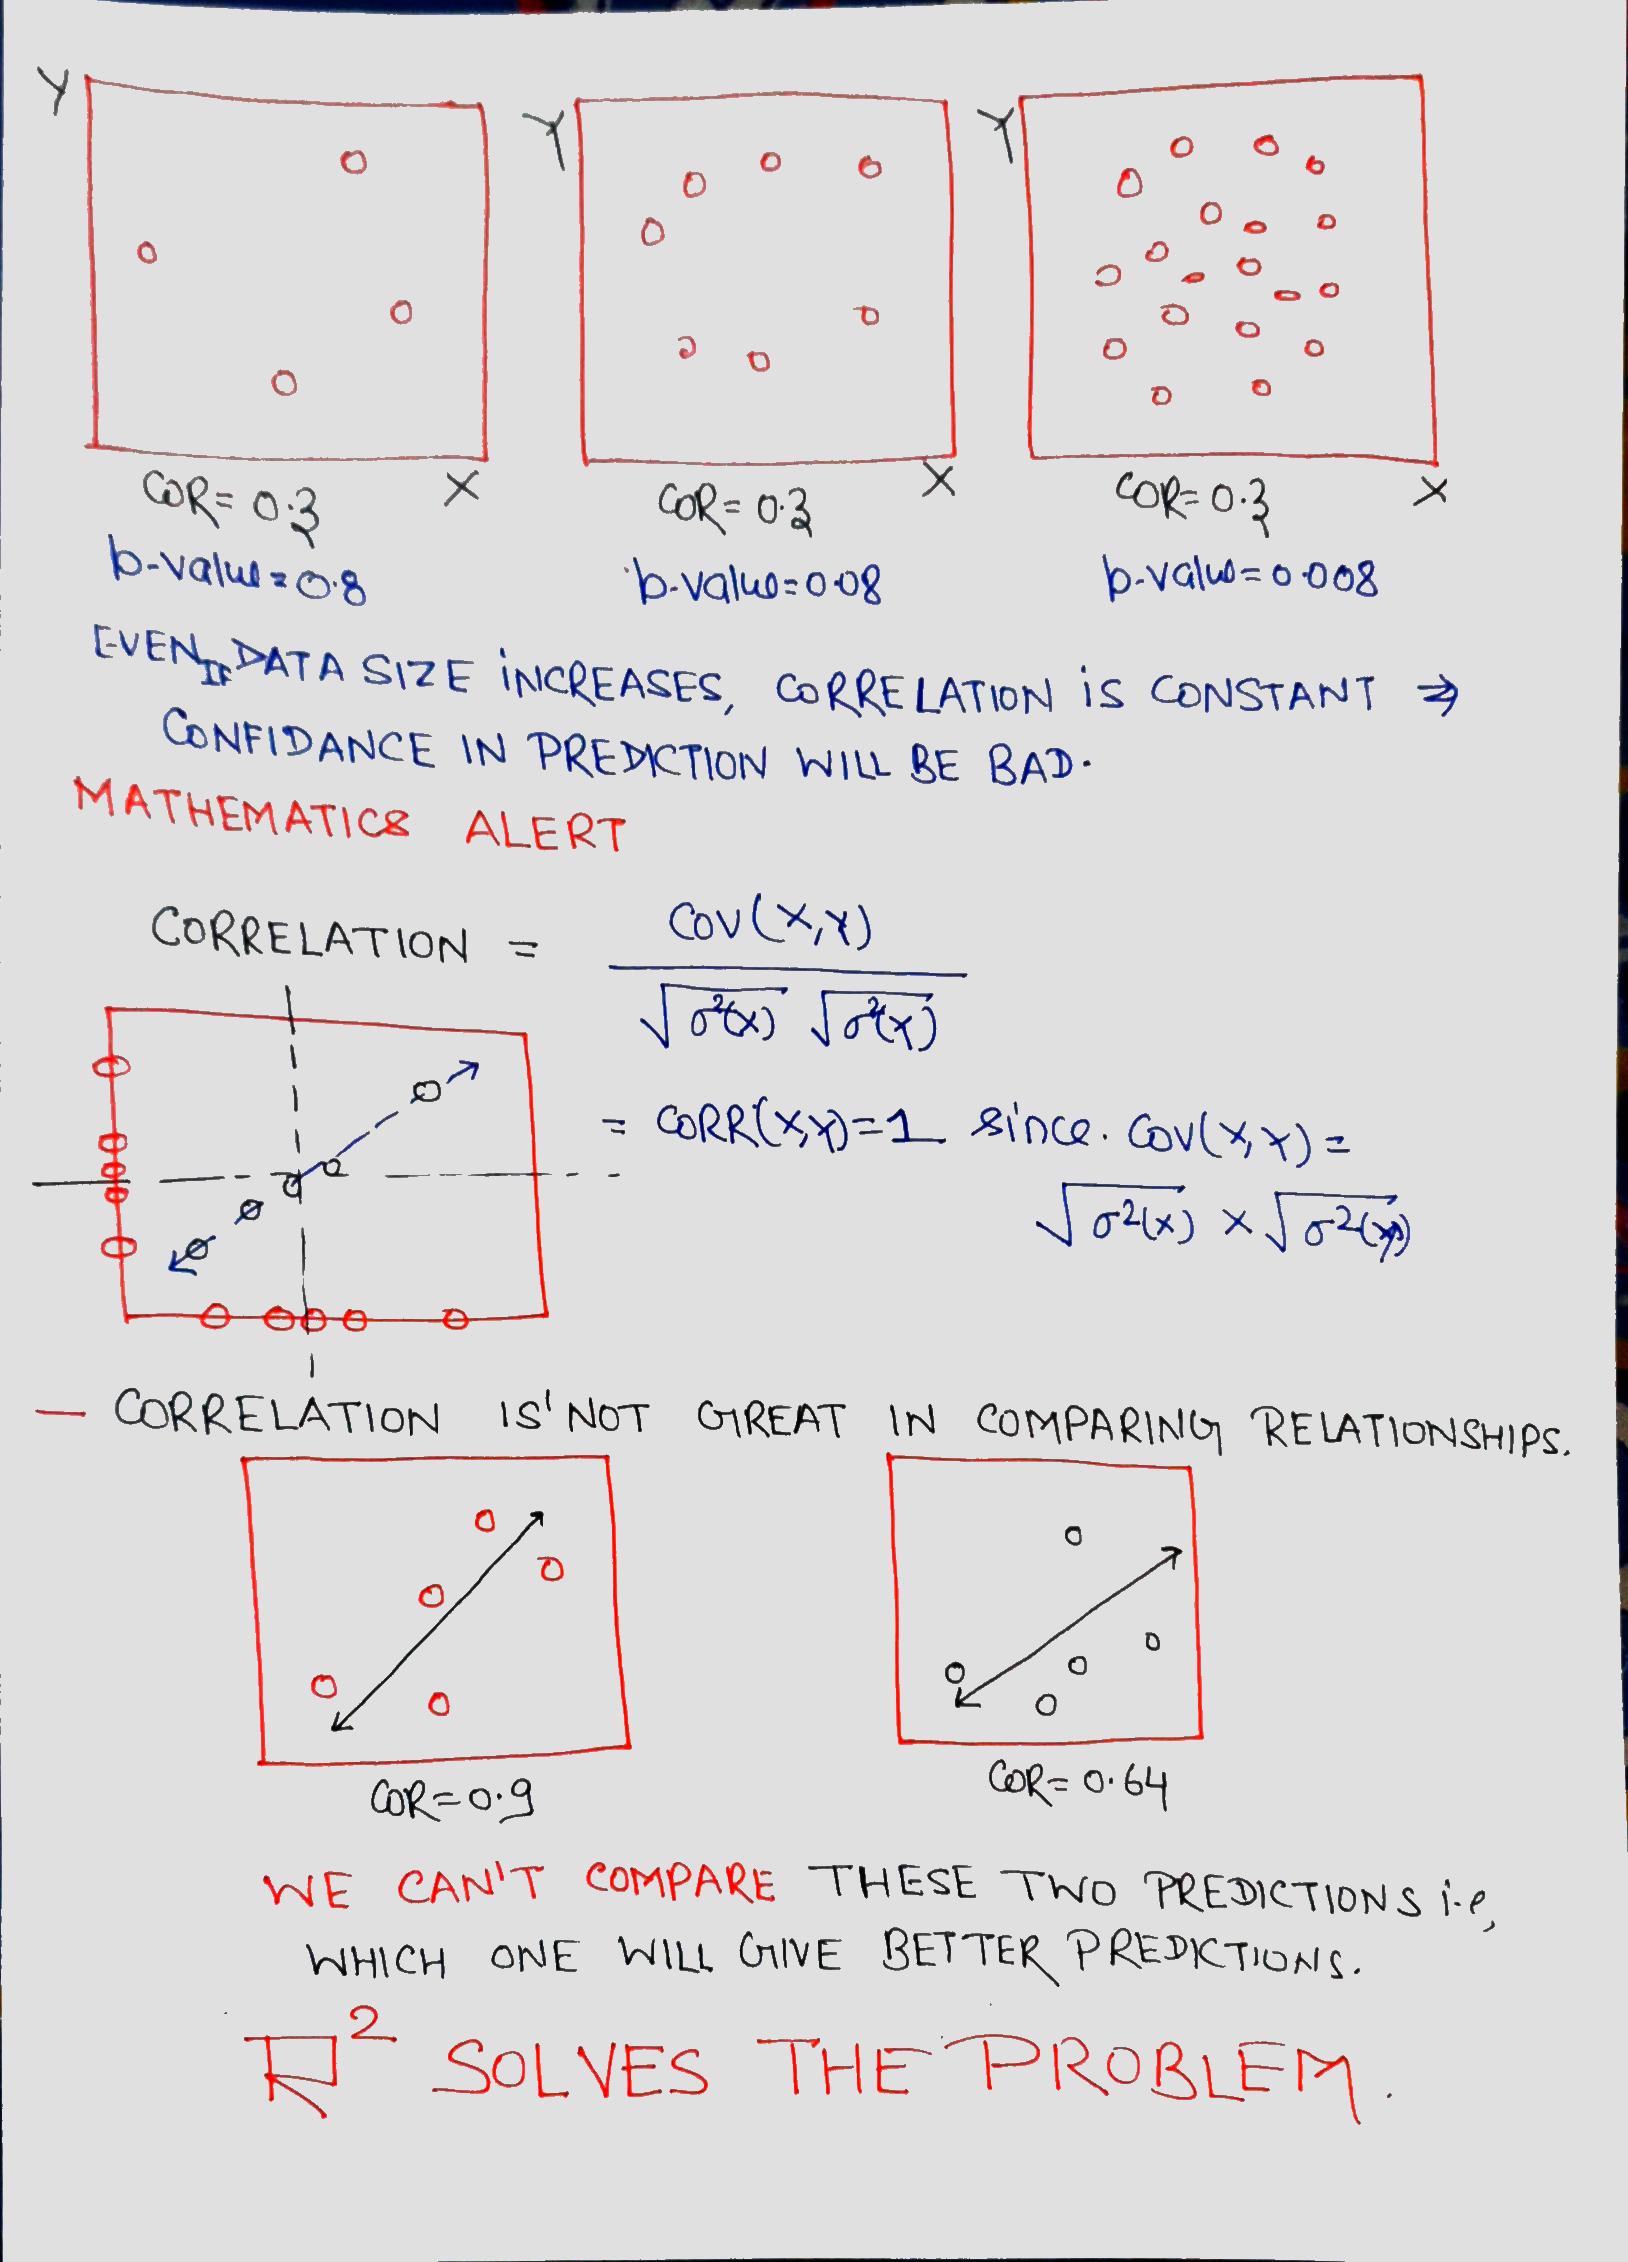 Y
Y
Y
COR= 0.3 X
COR= 0.3 X
COR= 0.3 X
p-value=0.8
p-value=0.08
p-value=0.008
EVEN IF DATA SIZE INCREASES, CORRELATION IS CONSTANT ⇒
CONFIDANCE IN PREDICTION WILL BE BAD.
MATHEMATICS ALERT
CORRELATION = Cov(X,Y)
√σ²(x) √σ²(Y)
= CORR(X,Y)=1 since. Cov(X,Y)=
√σ²(x) × √σ²(Y)
— CORRELATION IS' NOT GREAT IN COMPARING RELATIONSHIPS.
COR=0.9
COR= 0.64
WE CAN'T COMPARE THESE TWO PREDICTIONS i.e,
WHICH ONE WILL GIVE BETTER PREDICTIONS.
R² SOLVES THE PROBLEM.